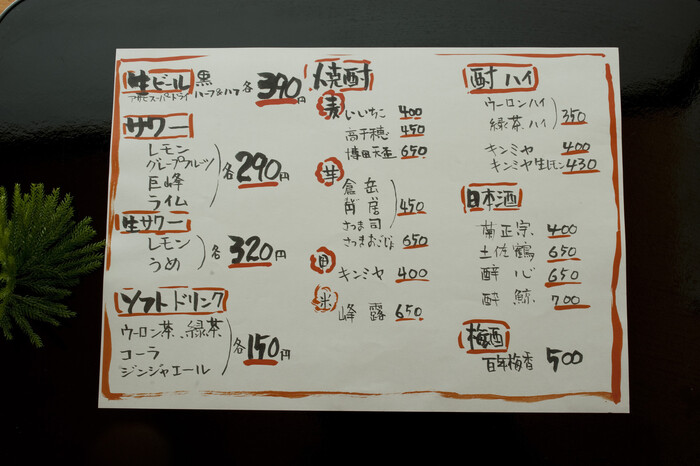 生ビール 黒 各390円
アサヒスーパードライ ハーフ&ハーフ
サワー
レモン
グレープフルーツ
巨峰
ライム
各290円
生サワー
レモン
うめ
各320円
ソフトドリンク
ウーロン茶、緑茶
コーラ
ジンジャエール
各150円
焼酎
麦 いいちこ 400
高千穂 450
博田天盃 650
芋
倉岳
角居
さつま司
450
さつまおごじょ 650
甲
キンミヤ 400
米
峰露 650
酎ハイ
ウーロンハイ
緑茶ハイ
350
キンミヤ 400
キンミヤ生レモン 430
日本酒
菊正宗 400
土佐鶴 650
酔心 650
酔鯨 700
梅酒
百年梅香 500